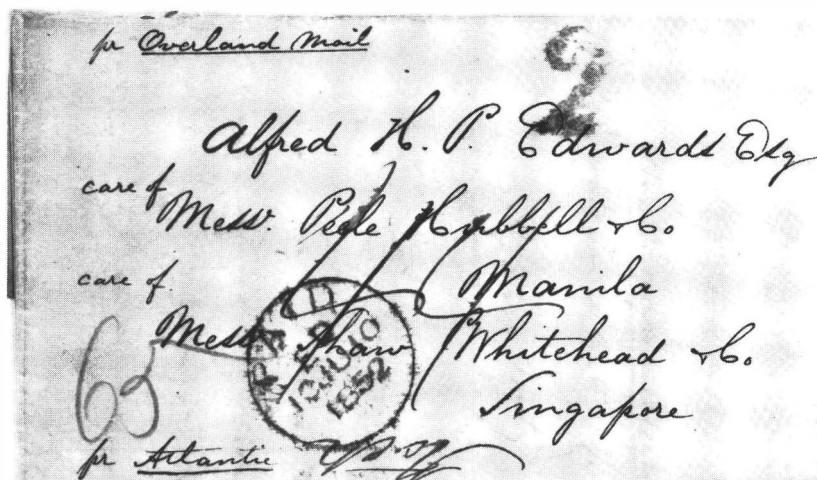 pr Overland Mail
2
Alfred H. P. Edwards Esq
care of
Messr. Peele Hubbell & Co.
care of
Manila
Messr Shaw Whitehead & Co.
Singapore
63
PAID
10 JU 10
1852
pr Atlantic